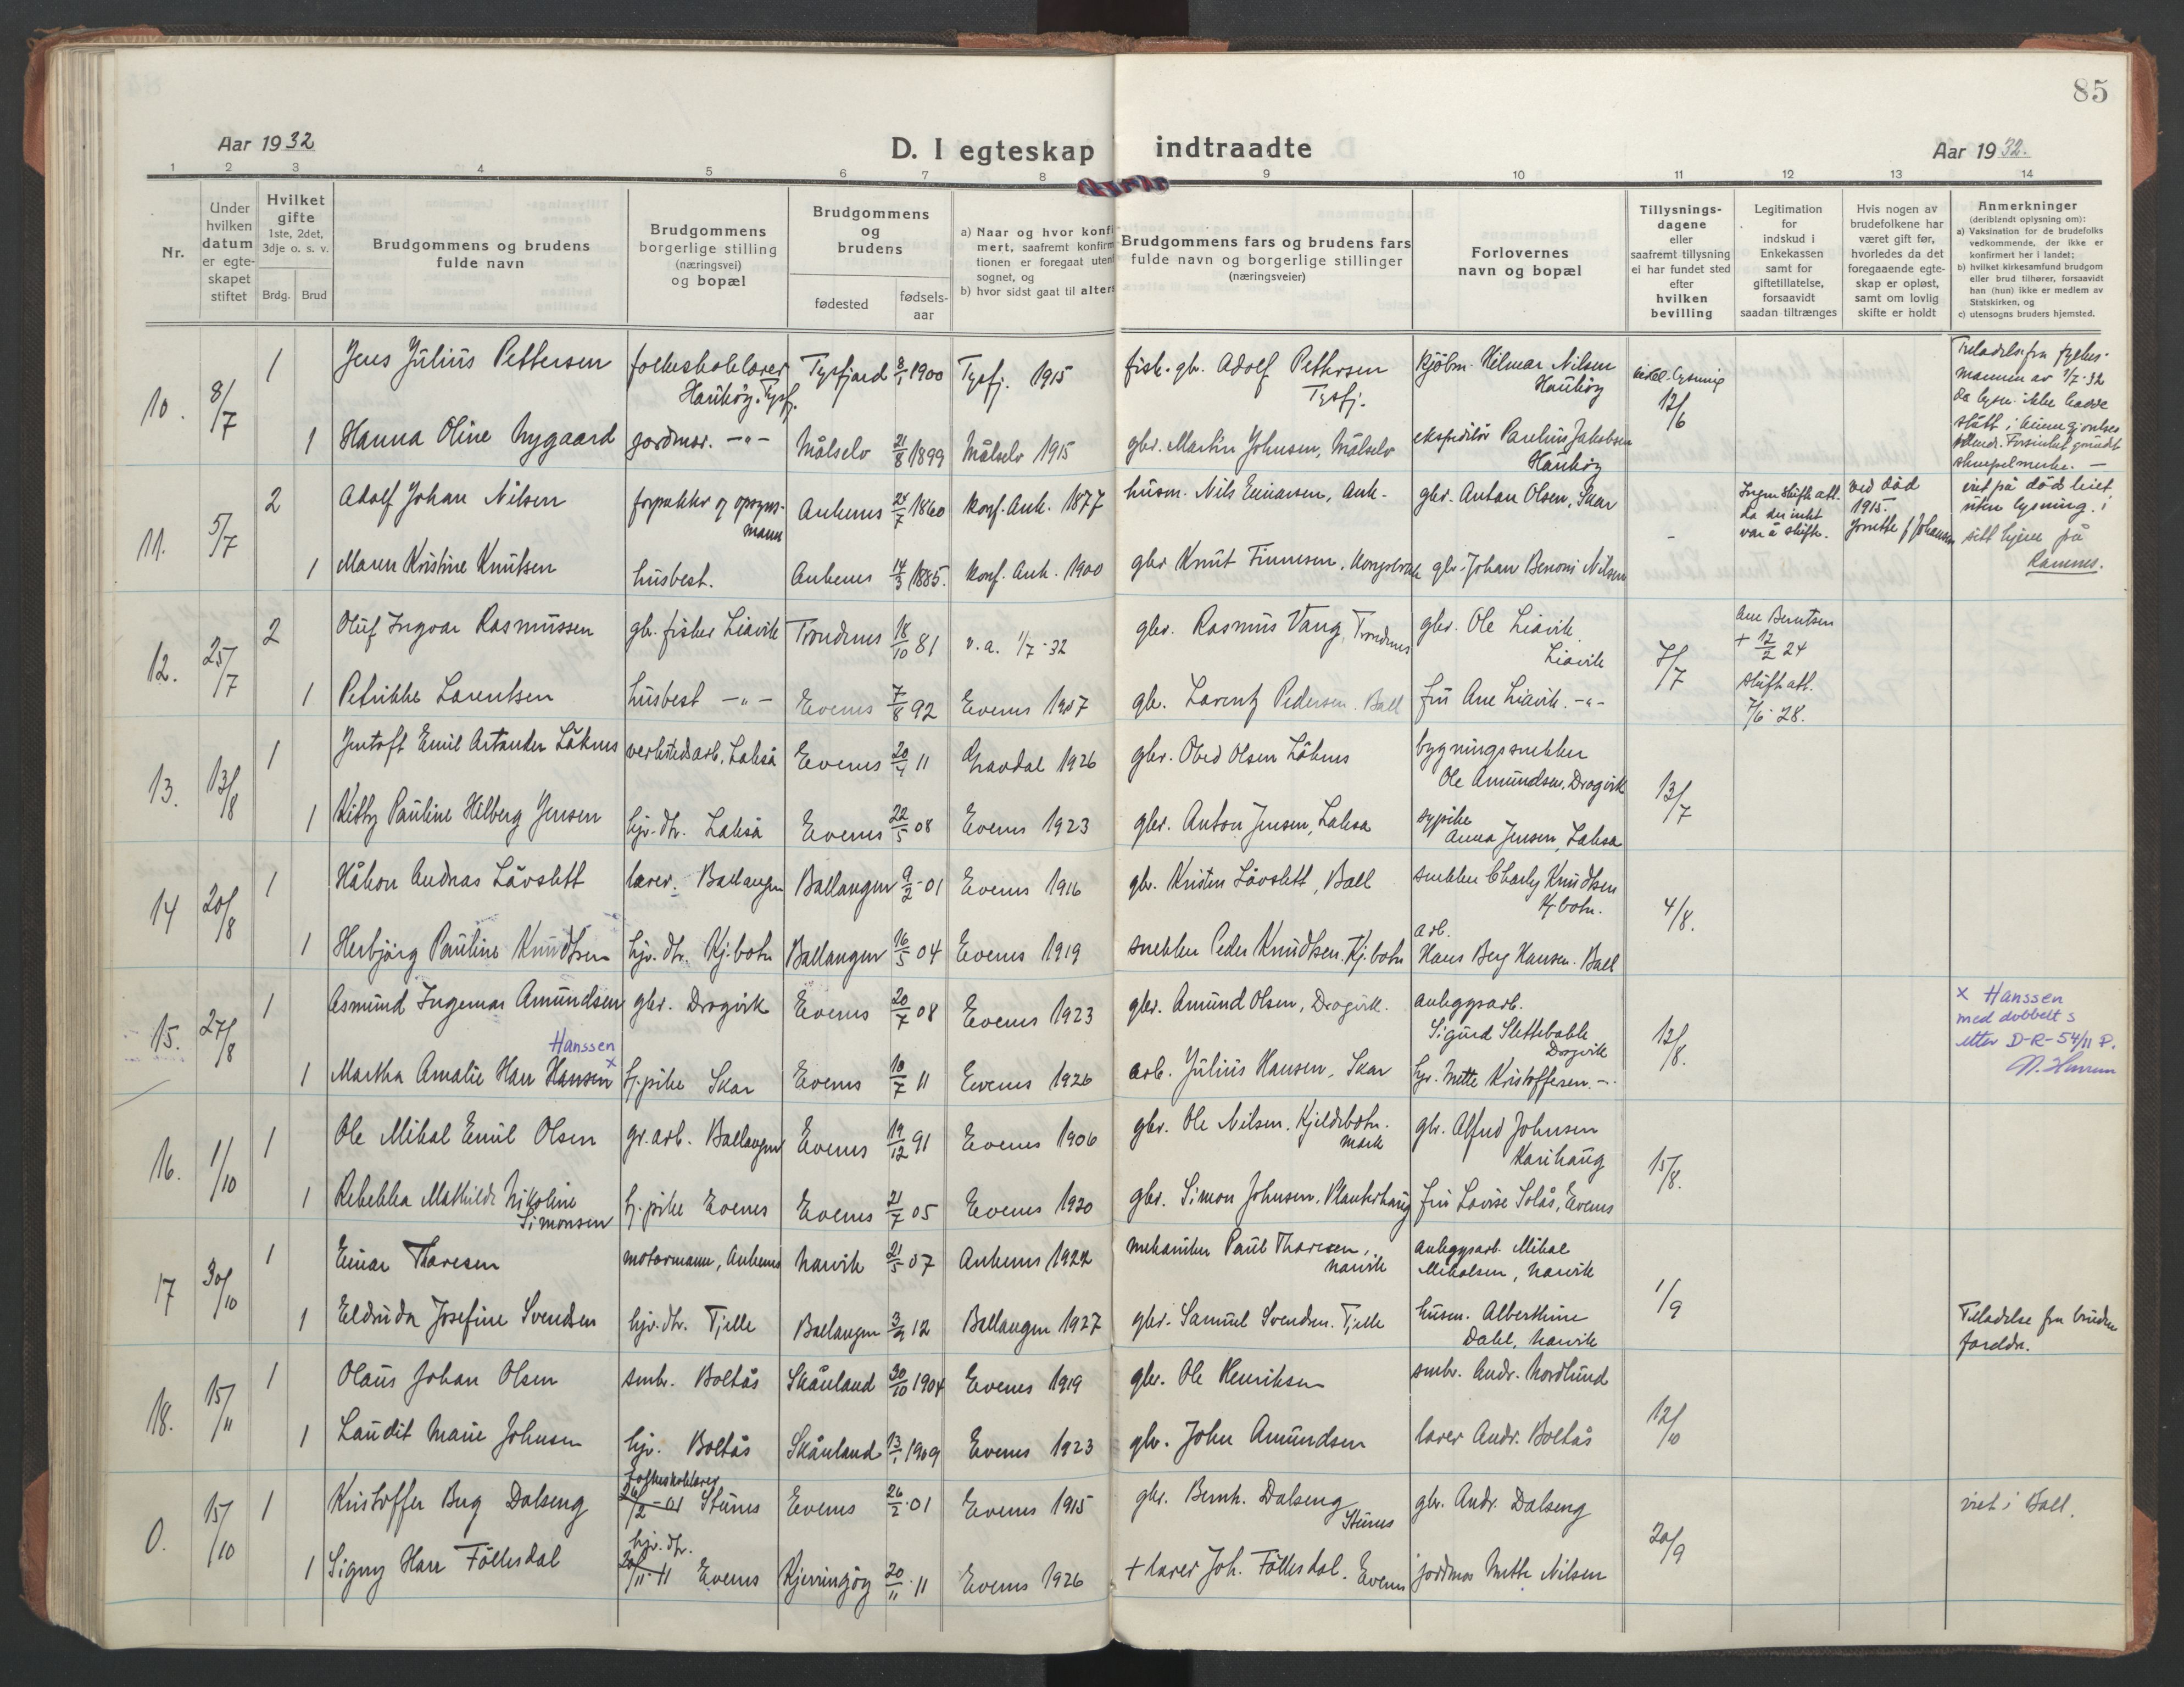 85
Aar 1932
D. I egteskap indtraadte
Aar 1932.
1 2 3 4 5 6 7 8 9 10 11 12 13 14
Nr.
Under
hvilken
datum
er egte-
skapet
stiftet
Hvilket
gifte
1ste, 2det,
3dje o. s. v.
Brdg. Brud
Brudgommens og brudens
fulde navn
Brudgommens
borgerlige stilling
(næringsvei)
og bopæl
Brudgommens
og
brudens
fødested
fødsels-
aar
a) Naar og hvor konfi
mert, saafremt konfirm
tionen er foregaat uten
sognet, og
b) hvor sidst gaat til alters
Brudgommens fars og brudens fars
fulde navn og borgerlige stillinger
(næringsveier)
Forlovernes
navn og bopæl
Tillysnings-
dagene
eller
saafremt tillysning
ei har fundet sted
efter
hvilken
bevilling
Legitimation
for
indskud i
Enkekassen
samt for
giftetillatelse,
forsaavidt
saadan tiltrænges
Hvis nogen av
brudefolkene har
været gift før,
hvorledes da det
foregaaende egte-
skap er opløst,
samt om lovlig
skifte er holdt
Anmerkninger
(deriblandt oplysning om):
a) Vaksination for de brudefolks
vedkommende, der ikke er
konfirmert her i landet;
b) hvilket kirkesamfund brudgom
eller brud tilhører, forsaavidt
han (hun) ikke er medlem av
Statskirken, og
c) utensogns bruders hjemsted.
10. 8/7 1 Jens Julius Pettersen folkeskolelærer Haukøy. Tysfj. Tysfjord 8/1 1900 Tysfj. 1915 fisk. gbr. Adolf Pettersen Tysfj. kjøbm. Hilmar Nilsen Haukøy 12/6
1 Hanna Oline Nygaard jordmor. -"- Målselv 21/8 1899 Målselv 1915 gbr. Martin Johnsen, Målselv ekspeditør Paulus Jakobsen Haukøy
Tilladelse fra fylkes-
mannen av 1/7-32
11. 5/7 2 Adolf Johan Nilsen forpakter og opsyns-mann Ankenes 24/7 1860 konf. Ank. 1877 husm. Nils Einarsen, Ank. gbr. Anton Olsen, Skar - Ingen skifteatt. da der intet var å skifte. ved død 1915.
1 Maren Kristine Knutsen husbest. Ankenes 14/3 1885. konf. Ank. 1900 gbr Knut Finnesen, gbr. Johan Benoni Nilsen
viet på dødsleiet
uten lysning. i
sitt hjem på
Ramnes.
12. 25/7 2 Oluf Ingvar Rasmussen gbr. fisker Liavik Trondenes 18/10 81 v.a. 1/7-32 gbr. Rasmus Vang, Trondenes gbr. Ole Liavik. Liavik 7/7 Ane Berntsen + 12/2 24
1 Petrikke Lorentsen husbest -"- Evenes 7/8 92 Evenes 1907 gbr. Lorentz Pedersen. Ball fru Ane Liavik. -"- skifteatt. 7/6-28.
13. 13/8 1 Jentoft Emil Artander Låknes verkstedsarb. Lakså Evenes 20/4 11 Gravdal 1926 gbr. Obed Olsen Låknes bygningssnekker Ole Amundsen, Dragvik 13/7
1 Kitty Pauline Hilberg Jensen hjv. dtr. Lakså Evenes 22/5 08 Evenes 1923 gbr. Anton Jensen, Laksa sypike Anna Jensen, Laksa
14 20/8 1 Håkon Andreas Løvslett lærer. Ballangen Ballangen 9/2-01 Evenes 1916 gbr. Kristen Løvslett, Ball snekker Charly Knudtsen Kj. botn. 4/8.
1 Herbjørg Pauline Knudtsen hjv. dtr. Kj. botn Ballangen 16/5 04 Evenes 1919 snekker Peder Knudtsen. Kj. botn arb. Hans Berg Hansen. Ball
15. 27/8 1 Asmund Ingemar Amundsen gbr. Dragvik Evenes 20/7 08 Evenes 1923 gbr. Amund Olsen, Dragvik. anleggsarb. Sigurd Slettebakk Dragvik 12/8.
Hanssen
1 Martha Amalie Harr Hansen x hj. pike Skar Evenes 10/7 11 Evenes 1926 arb. Julius Hansen, Skar hjv. Mette Kristoffersen. -"-
x Hanssen
med dobbelt s
etter D-R-54/11 P.
16. 1/10 1 Ole Mikal Emil Olsen gr. arb. Ballangen Evenes 19/12 91 Evenes 1906 gbr. Ole Nilsen. Kjeldebotn. mark gbr. Alfred Johnsen Karihaug 15/8.
1 Rebekka Mathilde Nikoline Simonsen hj. pike Evenes Evenes 21/7 05 Evenes 1920 gbr. Simon Johnsen. Plankehaug fru Lovise Solås, Evenes
17 30/10 1 Einar Thoresen motormann, Ankenes Narvik 21/5 07 Ankenes 1922 mekaniker Paul Thoresen, Narvik anleggsarb. Mikal Mikalsen, Narvik 1/9
1 Eldrida Josefine Svendsen hjv. dtr. Tjelle Ballangen 3/9 12 Ballangen 1927 gbr. Samuel Svendsen. Tjelle husm. Alberthine Dahl, Narvik
Tilladelse fra brudens
foreldre.
18. 15/11 1 Olaus Johan Olsen smbr. Boltås Skånland 30/10 1904 Evenes 1919 gbr. Ole Henriksen smbr. Andr. Nordlund 12/10
1 Laudit Marie Johnsen hjv. Boltås Skånland 13/1 1909 Evenes 1923 gbr. John Amundsen lærer Andr. Boltås
0. 15/10 1 Kristoffer Berg Dalseng folkeskolelærer 26/2-01 Stunes Evenes 26/2-01 Evenes 1915 gbr. Bernh. Dalseng Stunes gbr. Andr. Dalseng 20/9 viet i Ball.
1 Signy Harr Føllesdal hjv. dtr. 20/11-11 Evenes Kjerringøy 20/11-11 Evenes 1926 + lærer Joh. Føllesdal. Evenes jordmor Mette Nilsen